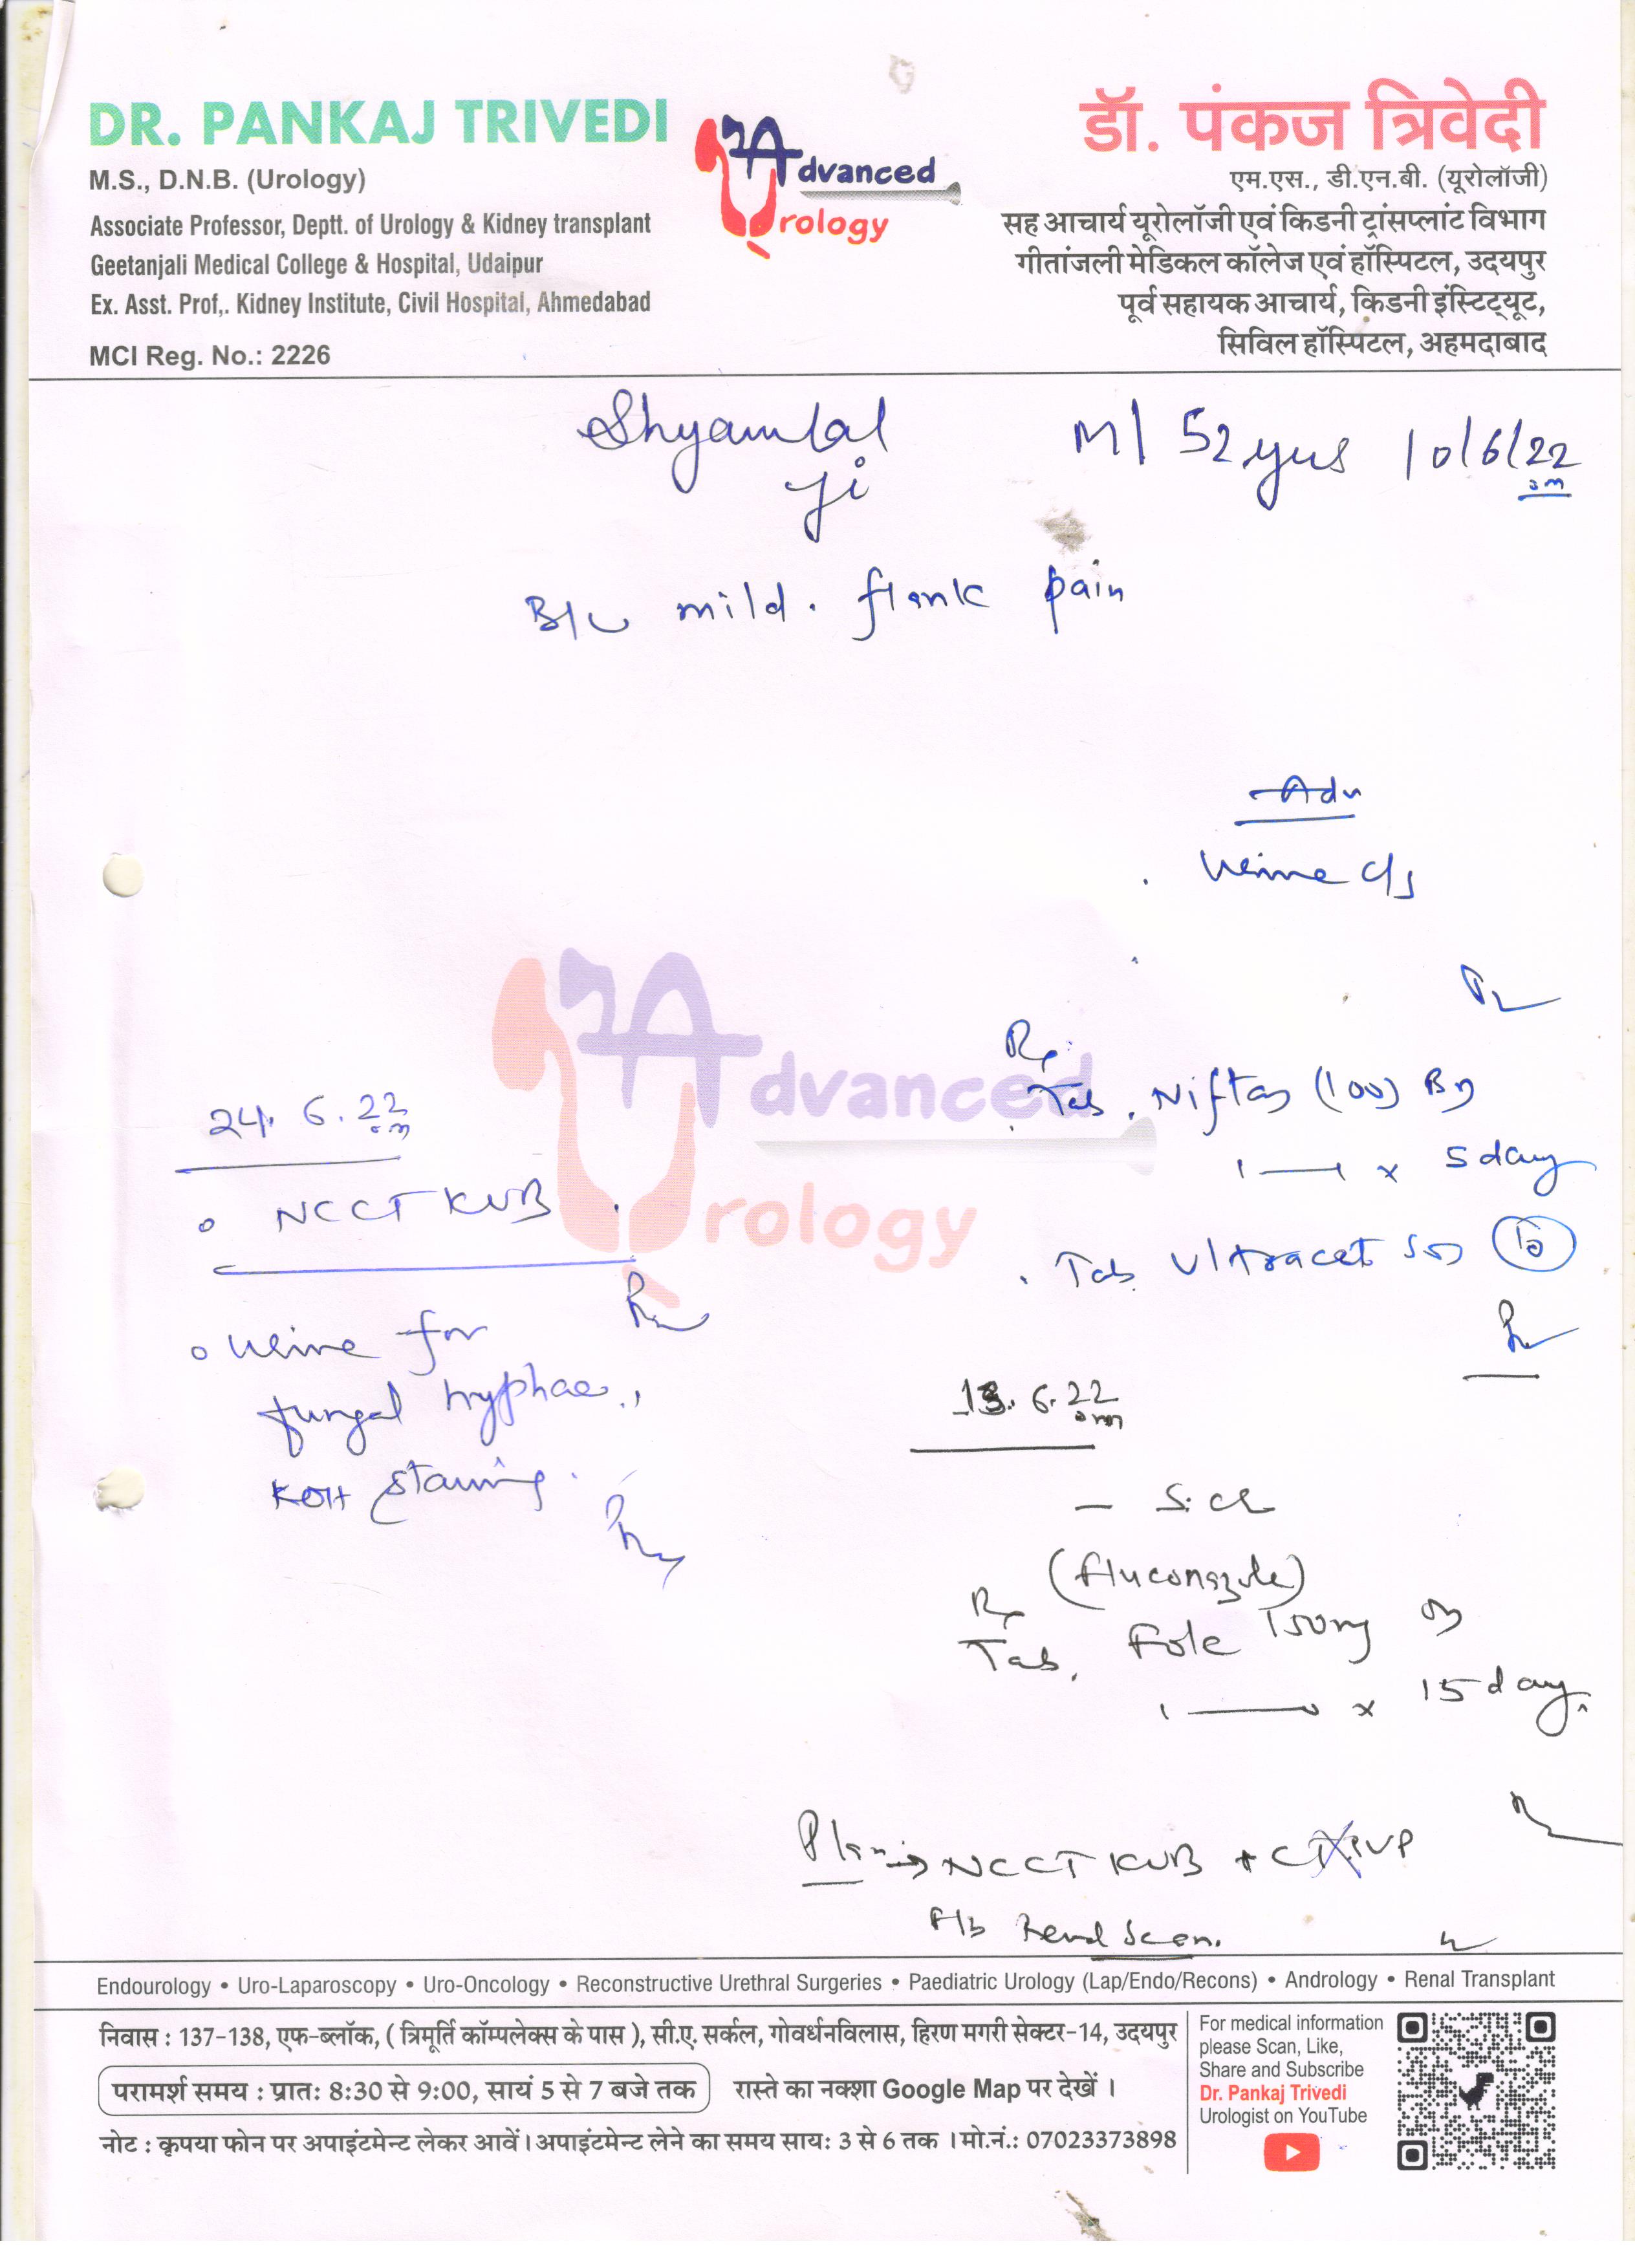 DR. PANKAJ TRIVEDI
M.S., D.N.B. (Urology)
Associate Professor, Deptt. of Urology & Kidney transplant
Geetanjali Medical College & Hospital, Udaipur
Ex. Asst. Prof,. Kidney Institute, Civil Hospital, Ahmedabad
MCI Reg. No.: 2226
Advanced
Urology
डॉ. पंकज त्रिवेदी
एम.एस., डी.एन.बी. (यूरोलॉजी)
सह आचार्य यूरोलॉजी एवं किडनी ट्रांसप्लांट विभाग
गीतांजली मेडिकल कॉलेज एवं हॉस्पिटल, उदयपुर
पूर्व सहायक आचार्य, किडनी इंस्टिट्यूट,
सिविल हॉस्पिटल, अहमदाबाद
Shyamlal M/ 52 yrs 10/6/22
ji
B/L mild. flank pain
Adv
Urine C/s
Rx
Tab. Niftas (100) BD
1 — 1 x 5 day
Tab Ultracet SOS 10
13.6.22
(fluconazole)
Rx
Tab. Fole 150mg OD
1 — x 15 days
Plan → NCCT KUB + CT IVP
Renal Scan.
24.6.22
NCCT KUB
Urine for
fungal hyphae,
KOH staining.
Advanced
Urology
Endourology • Uro-Laparoscopy • Uro-Oncology • Reconstructive Urethral Surgeries • Paediatric Urology (Lap/Endo/Recons) • Andrology • Renal Transplant
निवास : 137-138, एफ-ब्लॉक, ( त्रिमूर्ति कॉम्पलेक्स के पास ), सी.ए. सर्कल, गोवर्धनविलास, हिरण मगरी सेक्टर-14, उदयपुर
परामर्श समय : प्रातः 8:30 से 9:00, सायं 5 से 7 बजे तक रास्ते का नक्शा Google Map पर देखें ।
नोट : कृपया फोन पर अपाइंटमेन्ट लेकर आवें। अपाइंटमेन्ट लेने का समय सायः 3 से 6 तक । मो.नं.: 07023373898
For medical information
please Scan, Like,
Share and Subscribe
Dr. Pankaj Trivedi
Urologist on YouTube